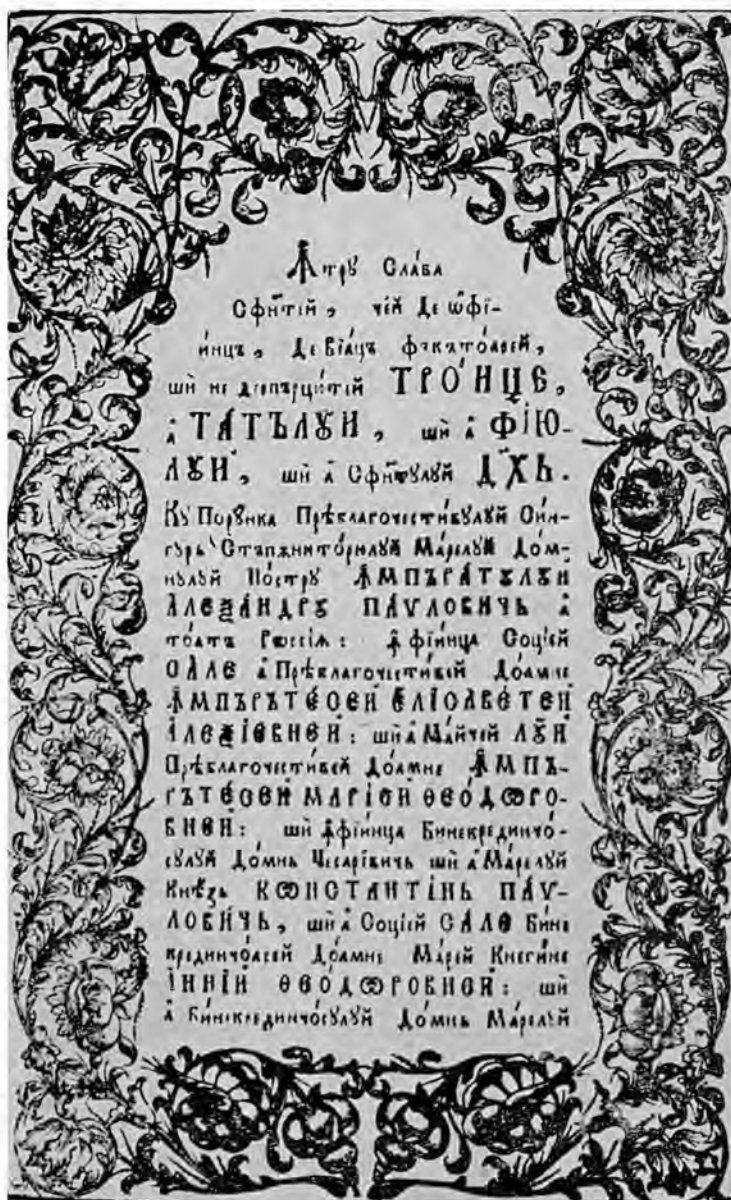 Ꙟтрꙋ Слава
Сфи́нтїй, че́й Де ѡ҆фїи-
инцъ, Де Вїацъ фъкъто́арей,
шѝ не деспърци́тїй ТРО́ИЦЕ,
а҆ ТА́ТЪЛꙋИ, шѝ а҆ ФІЮ-
ЛꙋИ, шѝ а҆ Сфи́нтꙋлꙋй ДХЬ.
Кꙋ Порꙋнка Прѣблагочести́вꙋлꙋй Син-
гꙋрь Стъпѫнито́рюлꙋй Ма́релꙋй До́м-
нꙋлꙋй Нострꙋ ꙞМПЪРА́ТꙋЛꙋЙ
АЛЕѮА́НДРꙋ ПА́ѴЛОВИЧЬ а҆
то́атъ Рѡссїѧ: ꙟ фїинца Соцїей
СА́ЛЕ а҆ Прѣблагочести́вей До́амне
ꙞМПЪРЪТЕ́СЕЙ ЕЛІСАВЕ́ТЕЙ
АЛЕѮІ́ЕВНЕЙ: шѝ а҆ Ма́йчей ЛꙋЙ
Прѣблагочести́вей До́амне ꙞМПЪ-
РЪТЕ́СЕЙ МАРІ́ЕЙ ѲЕО́ДѠРО-
ВНЕЙ: шѝ ꙟ фїинца Бинекрединчо́-
сꙋлꙋй До́мнь Чесаре́вичь шѝ а҆ Ма́релꙋй
Кнѣ́зь КѠНСТАНТІ́НЬ ПА́Ѵ-
ЛОВИЧЬ, шѝ а҆ Соцїей СА́ЛЕ Бине
крединчо́асей До́амне Ма́рей Кнеги́не
А́ННІЙ ѲЕО́ДѠРОВНЕЙ: шѝ
а҆ Би́некрединчо́сꙋлꙋй До́мнь Ма́релꙋй